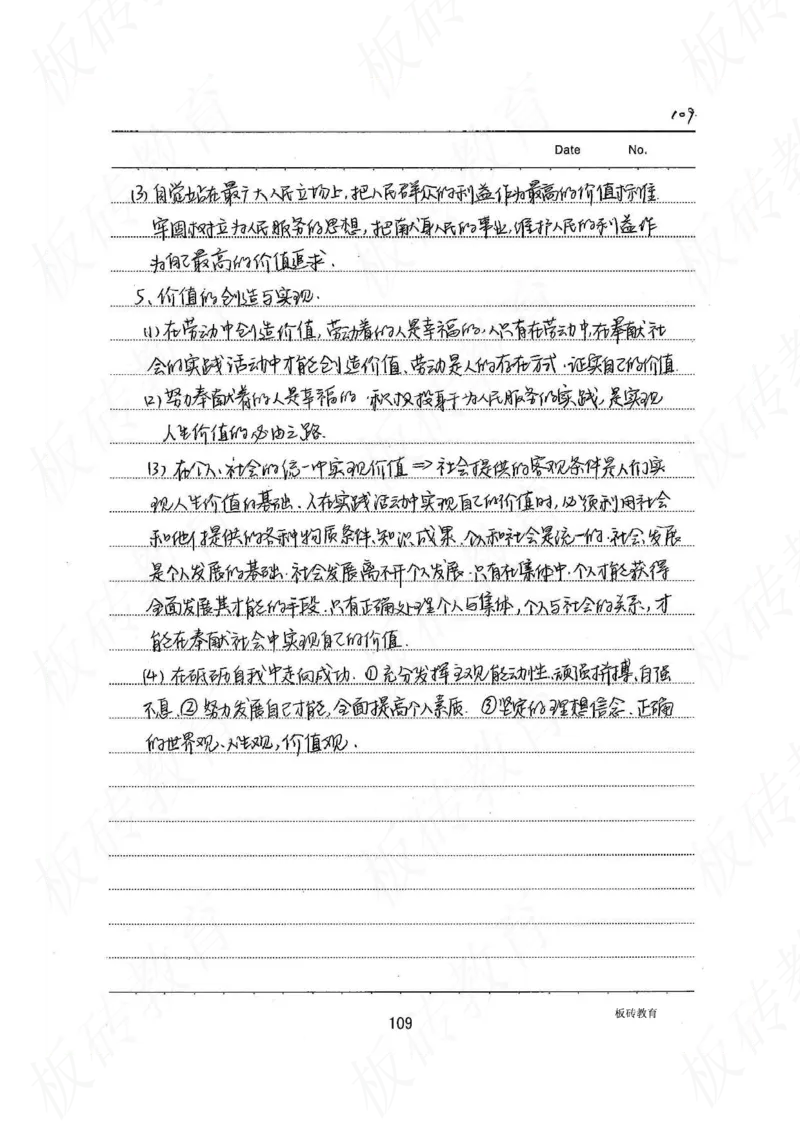 109
Date No.
(3)自觉站在最广大人民立场上,把人民群众的利益作为最高的价值标准.
牢固树立为人民服务的思想,把献身人民的事业,维护人民的利益作
为自己最高的价值追求.
5、价值的创造与实现.
(1)在劳动中创造价值,劳动着的人是幸福的.人只有在劳动中,在奉献社
会的实践活动中才能创造价值、劳动是人的存在方式.证实自己的价值.
(2)努力奉献着的人是幸福的.积极投身于为人民服务的实践,是实现
人生价值的必由之路.
(3)在个人、社会的统一中实现价值⇒社会提供的客观条件是人们实
现人生价值的基础.人在实践活动中实现自己的价值时,必须利用社会
和他人提供的各种物质条件、知识成果.个人和社会是统一的.社会发展
是个人发展的基础.社会发展离不开个人发展.只有在集体中,个人才能获得
全面发展其才能的手段.只有正确处理个人与集体,个人与社会的关系,才
能在奉献社会中实现自己的价值.
(4)在砥砺自我中走向成功.①充分发挥主观能动性、顽强拼搏、自强
不息.②努力发展自己才能,全面提高个人素质.③坚定的理想信念.正确
的世界观、人生观,价值观.
109
板砖教育